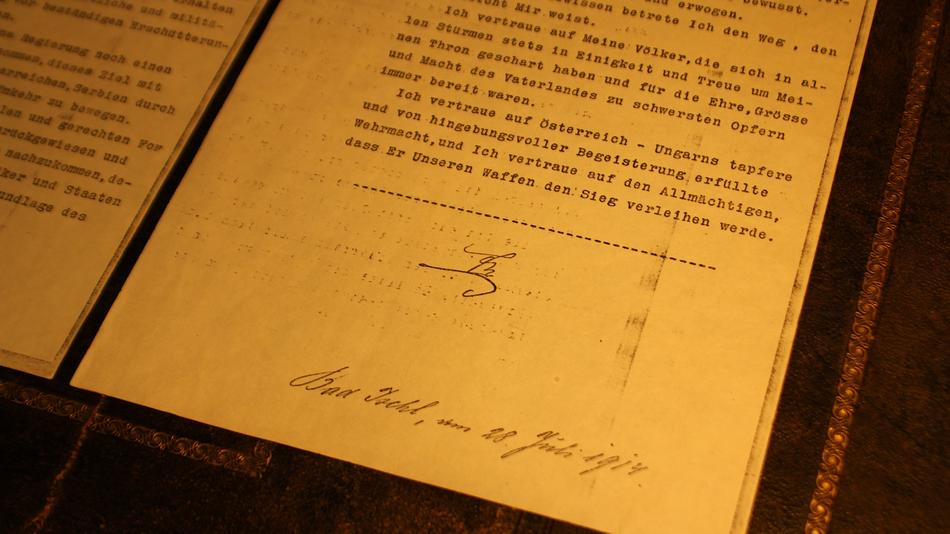 erhalten
liche und militä-
vor beständigen Erschütterun-
Regierung noch einen
ommen,dieses Ziel mit
erreichen,Serbien durch
mkehr zu bewegen.
len und gerechten For
urückgewiesen und
nachzukommen,de-
ker und Staaten
undlage des
bewusst.
und erwogen.
wissen betrete Ich den Weg , den
Mir weist.
Ich vertraue auf Meine Völker,die sich in al-
len Stürmen stets in Einigkeit und Treue um Mei-
nen Thron geschart haben und für die Ehre,Grösse
und Macht des Vaterlandes zu schwersten Opfern
immer bereit waren.
Ich vertraue auf Österreich - Ungarns tapfere
und von hingebungsvoller Begeisterung erfüllte
Wehrmacht,und Ich vertraue auf den Allmächtigen,
dass Er Unseren Waffen den Sieg verleihen werde.
Bad Ischl, am 28. Juli 1914.